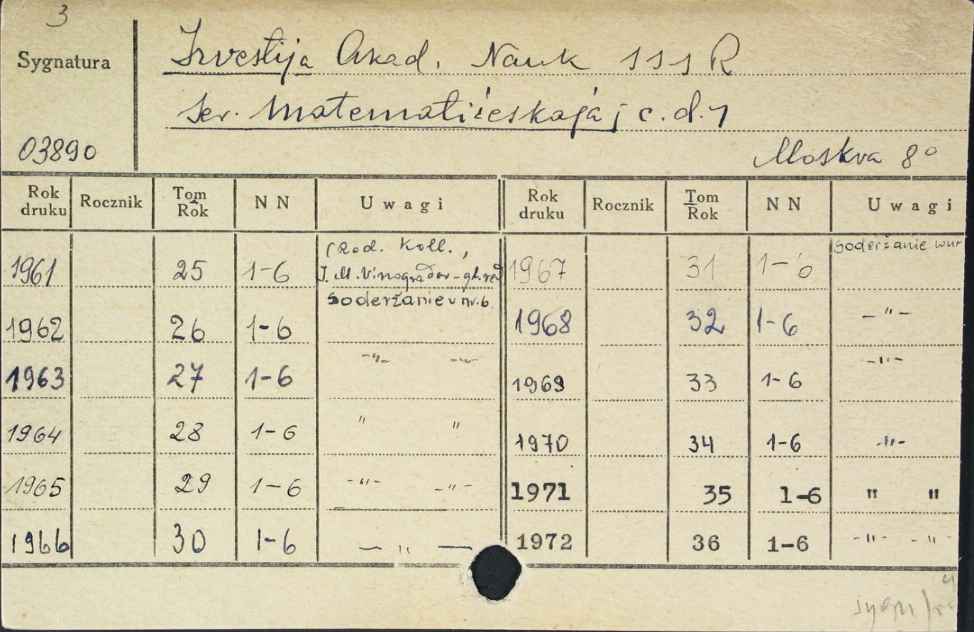 3
Sygnatura
03890
Izvestija Akad. Nauk SSSR
Ser. Matematičeskaja; c.d. 1
Moskva 8°
Rok druku Rocznik Tom Rok NN Uwagi
1961 25 1-6 (Red. Koll., I. M. Vinogradov - gł. red
Soderžanie v nr. 6
1962 26 1-6
1963 27 1-6 -"- -"-
1964 28 1-6 " "
1965 29 1-6 -"- -"-
1966 30 1-6 — " —
Rok druku Rocznik Tom Rok NN Uwagi
1967 31 1-6 Soderžanie w nr
1968 32 1-6 -"-
1969 33 1-6 -"-
1970 34 1-6 -"-
1971 35 1-6 " "
1972 36 1-6 -"- -"-